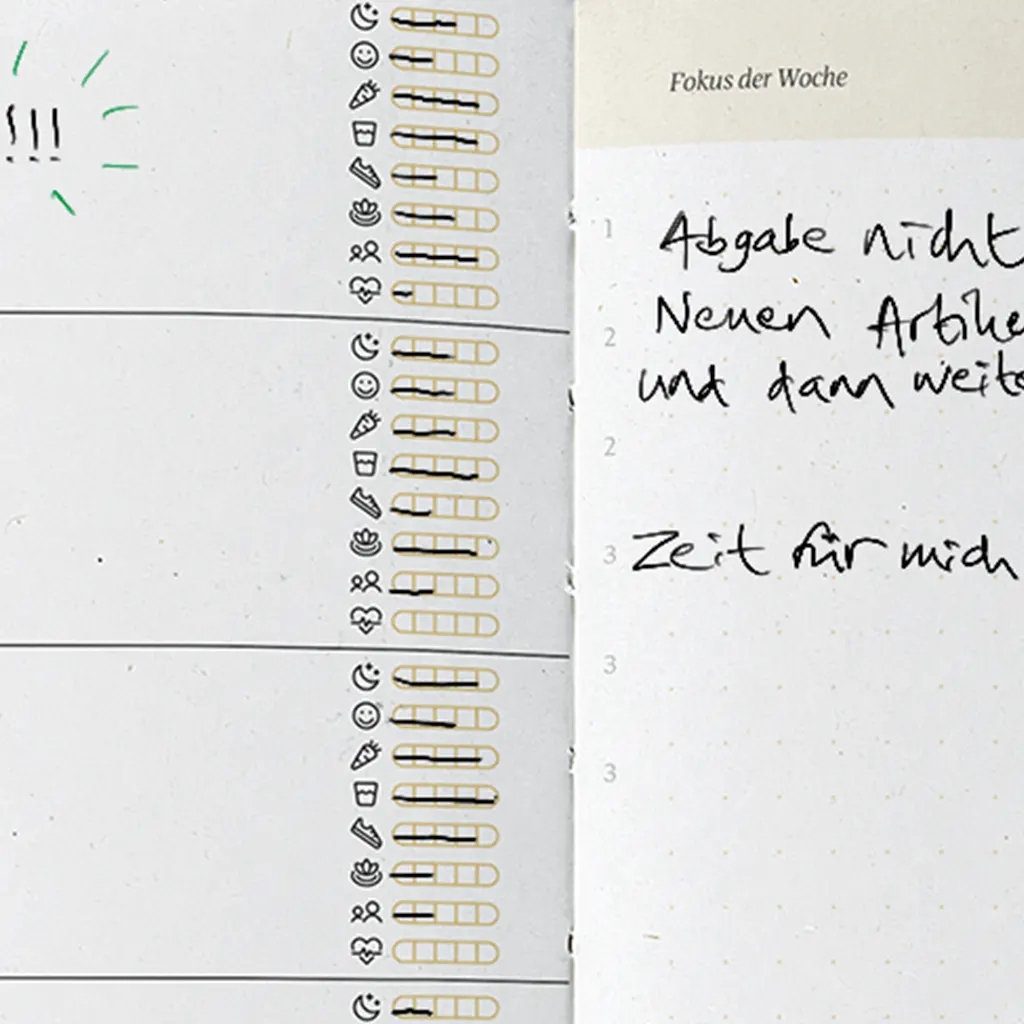 !!!
Fokus der Woche
1 Abgabe nicht
2 Neuen
und dann
2
3 Zeit für mich
3
3